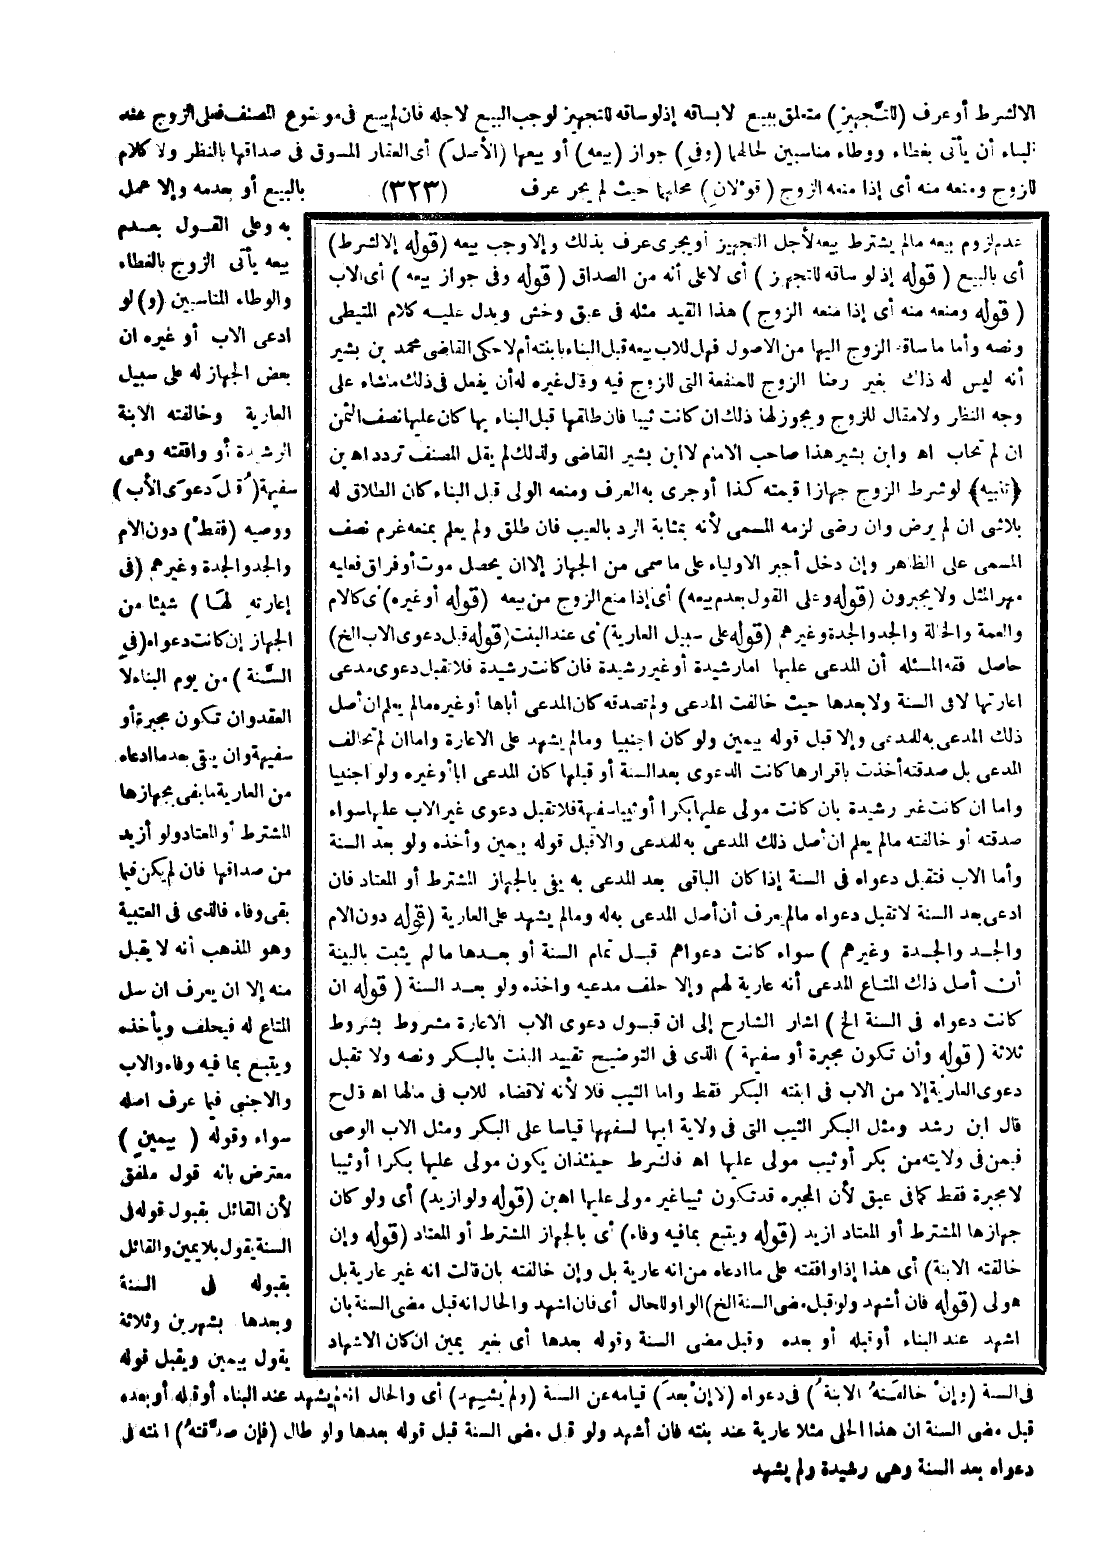 الالشرط أو عرف (للتَّجهيزِ) متعلق ببيع لا بساقه إذ لو ساقه للتجهيز لوجب البيع لاجله فان لم يبع فى موضوع المصنف فعلى الزوج عند
البناء أن يأتى بغطاء ووطاء مناسبين لحالهما (وفى) جواز (بيعه) أو بيعها (الأصلَ) أى العقار المسوق فى صداقها بالنظر ولا كلام
للزوج ومنعه منه أى إذا منعه الزوج (قولانِ) محلهما حيث لم يجر عرف (٣٢٣) بالبيع أو بعدمه وإلا عمل
به وعلى القول بعدم
بيعه يأتى الزوج بالغطاء
والوطاء المناسبين (و) لو
ادعى الاب أو غيره ان
بعض الجهاز له على سبيل
العارية وخالفته الابنة
الرشيدة أو وافقته وهى
سفيهة (قُبلَ دعوَى الأب)
ووصيه (فقطْ) دون الام
والجد والجدة وغيرهم (فى
إعارته لهَا) شيئا من
الجهاز إن كانت دعواه (فى
السَّنة) من يوم البناء لا
العقد وان تكون مجبرة أو
سفيهة وان يبقى بعد ما ادعاه
من العارية ما يفى بجهازها
المشترط أو المعتاد ولو أزيد
من صداقها فان لم يكن فيما
بقى وفاء فالذى فى العتبية
وهو المذهب أنه لا يقبل
منه إلا ان يعرف ان سل
المتاع له فيحلف ويأخذه
ويتبع بما فيه وفاء والاب
والاجنبى فيما عرف اصله
سواء وقوله (بيمينٍ)
معترض بانه قول ملفق
لأن القائل بقبول قوله فى
السنة يقول بلا يمين والقائل
بقبوله فى السنة
وبعدها بشهرين وثلاثة
يقول بيمين ويقبل قوله
عدم لزوم بيعه مالم يشترط بيعه لأجل التجهيز أو يجرى عرف بذلك وإلا وجب بيعه (قوله إلا لشرط)
أى بالبيع (قوله إذ لو ساقه للتجهيز) أى لا على أنه من الصداق (قوله وفى جواز بيعه) أى الاب
(قوله ومنعه منه أى إذا منعه الزوج) هذا القيد مثله فى عبق وخش ويدل عليه كلام المتيطى
ونصه وأما ما ساقه الزوج اليها من الاصول فهل للاب بيعه قبل البناء بابنته أم لا حكى القاضى محمد بن بشير
أنه ليس له ذلك بغير رضا الزوج للمنفعة التى للزوج فيه وقال غيره له أن يفعل فى ذلك ما شاء على
وجه النظر ولا مقال للزوج ويجوز لها ذلك ان كانت ثيبا فان طلقها قبل البناء بها كان عليها نصف الثمن
ان لم تحاب اه وابن بشير هذا صاحب الامام لا ابن بشير القاضى ولذلك لم يقل المصنف تردد اه بن
﴿تنبيه﴾ لو شرط الزوج جهازا قيمته كذا أو جرى به العرف ومنعه الولى قبل البناء كان الطلاق له
بلا شى ان لم يرض وان رضى لزمه المسمى لأنه بمثابة الرد بالعيب فان طلق ولم يعلم بمنعه غرم نصف
المسمى على الظاهر وإن دخل أجبر الاولياء على ما سمى من الجهاز إلا ان يحصل موت أو فراق فعليه
مهر المثل ولا يجبرون (قوله وعلى القول بعدم بيعه) أى إذا منع الزوج من بيعه (قوله أو غيره) أى كالام
والعمة والخالة والجد والجدة وغيرهم (قوله على سبيل العارية) أى عند البنت (قوله قبل دعوى الاب الخ)
حاصل فقه المسئله أن المدعى عليها اما رشيدة أو غير رشيدة فان كانت رشيدة فلا تقبل دعوى مدعى
اعارتها لا فى السنة ولا بعدها حيث خالفت المدعى ولم تصدقه كان المدعى أباها أو غيره مالم يعلم ان أصل
ذلك المدعى به للمدعى وإلا قبل قوله بيمين ولو كان اجنبيا ومالم يشهد على الاعارة واما ان لم تخالف
المدعى بل صدقته أخذت باقرارها كانت الدعوى بعد السنة أو قبلها كان المدعى ابا أو غيره ولو اجنبيا
واما ان كانت غير رشيدة بان كانت مولى عليها بكرا أو ثيبا سفيهة فلا تقبل دعوى غير الاب عليها سواء
صدقته أو خالفته مالم يعلم ان أصل ذلك المدعى به للمدعى والا قبل قوله بيمين وأخذه ولو بعد السنة
وأما الاب فتقبل دعواه فى السنة إذا كان الباقى بعد المدعى به يفى بالجهاز المشترط أو المعتاد فان
ادعى بعد السنة لا تقبل دعواه مالم يعرف أن أصل المدعى به له ومالم يشهد على العارية (قوله دون الام
والجد والجدة وغيرهم) سواء كانت دعواهم قبل تمام السنة أو بعدها ما لم يثبت بالبينة
أن أصل ذلك المتاع المدعى أنه عارية لهم وإلا حلف مدعيه واخذه ولو بعد السنة (قوله ان
كانت دعواه فى السنة الخ) اشار الشارح إلى ان قبول دعوى الاب الاعارة مشروط بشروط
ثلاثة (قوله وأن تكون مجبرة أو سفيهة) الذى فى التوضيح تقييد البنت بالبكر ونصه ولا تقبل
دعوى العارية إلا من الاب فى ابنته البكر فقط واما الثيب فلا لأنه لا قضاء للاب فى مالها اه قال ح
قال ابن رشد ومثل البكر الثيب التى فى ولاية ابيها لسفهها قياسا على البكر ومثل الاب الوصى
فيمن فى ولايته من بكر أو ثيب مولى عليها اه فالشرط حينئذ ان يكون مولى عليها بكرا أو ثيبا
لا مجبرة فقط كما فى عبق لأن المجبره قد تكون ثيبا غير مولى عليها اه بن (قوله ولو ازيد) أى ولو كان
جهازها المشترط أو المعتاد ازيد (قوله ويتبع بما فيه وفاء) أى بالجهاز المشترط أو المعتاد (قوله وإن
خالفته الابنة) أى هذا إذا وافقته على ما ادعاه من انه عارية بل وإن خالفته بان قالت انه غير عارية بل
هو لى (قوله فان أشهد ولو قبل مضى السنة الخ) الواو للحال أى فان اشهد والحال انه قبل مضى السنة بان
اشهد عند البناء أو قبله أو بعده وقبل مضى السنة وقوله بعدها أى بغير يمين ان كان الاشهاد
فى السنة (وإنْ خالفتهُ الابنةُ) فى دعواه (لا إنْ بعدَ) قيامه عن السنة (ولم يُشهِد) أى والحال انه لم يشهد عند البناء أو قبله أو بعده
قبل مضى السنة ان هذا الحلى مثلا عارية عند بنته فان أشهد ولو قبل مضى السنة قبل قوله بعدها ولو طال (فإن صدَّقتهُ) ابنته فى
دعواه بعد السنة وهى رشيدة ولم يشهد